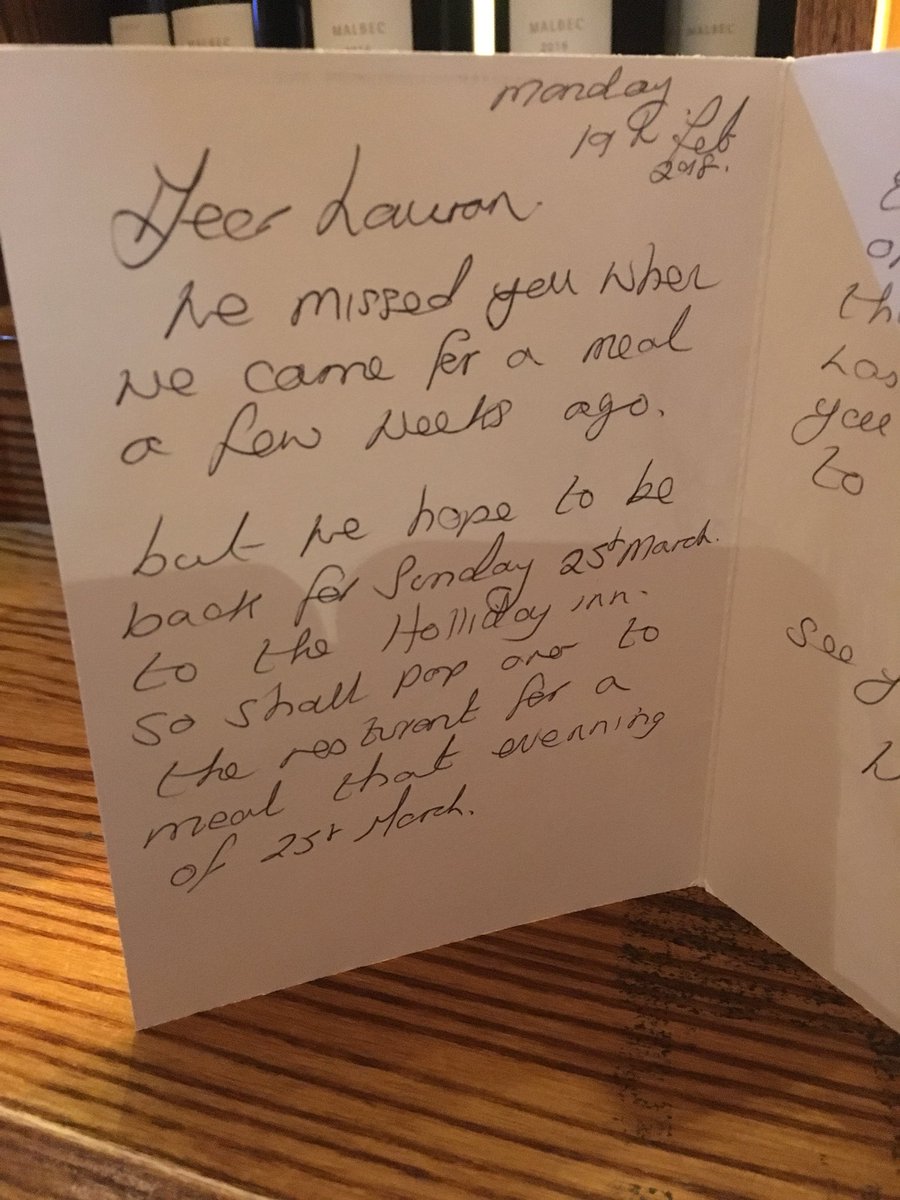 MALBEC
MALBEC
2016
MALBEC
2016
MALBEC
monday
19th Feb
2018.
Deer Lauran.
We missed you when
we came for a meal
a few weeks ago.
but we hope to be
back for Sunday 25st March.
to the Holliday inn.
so shall pop over to
the resturant for a
meal that evenning
of 25st March.
you
to
see